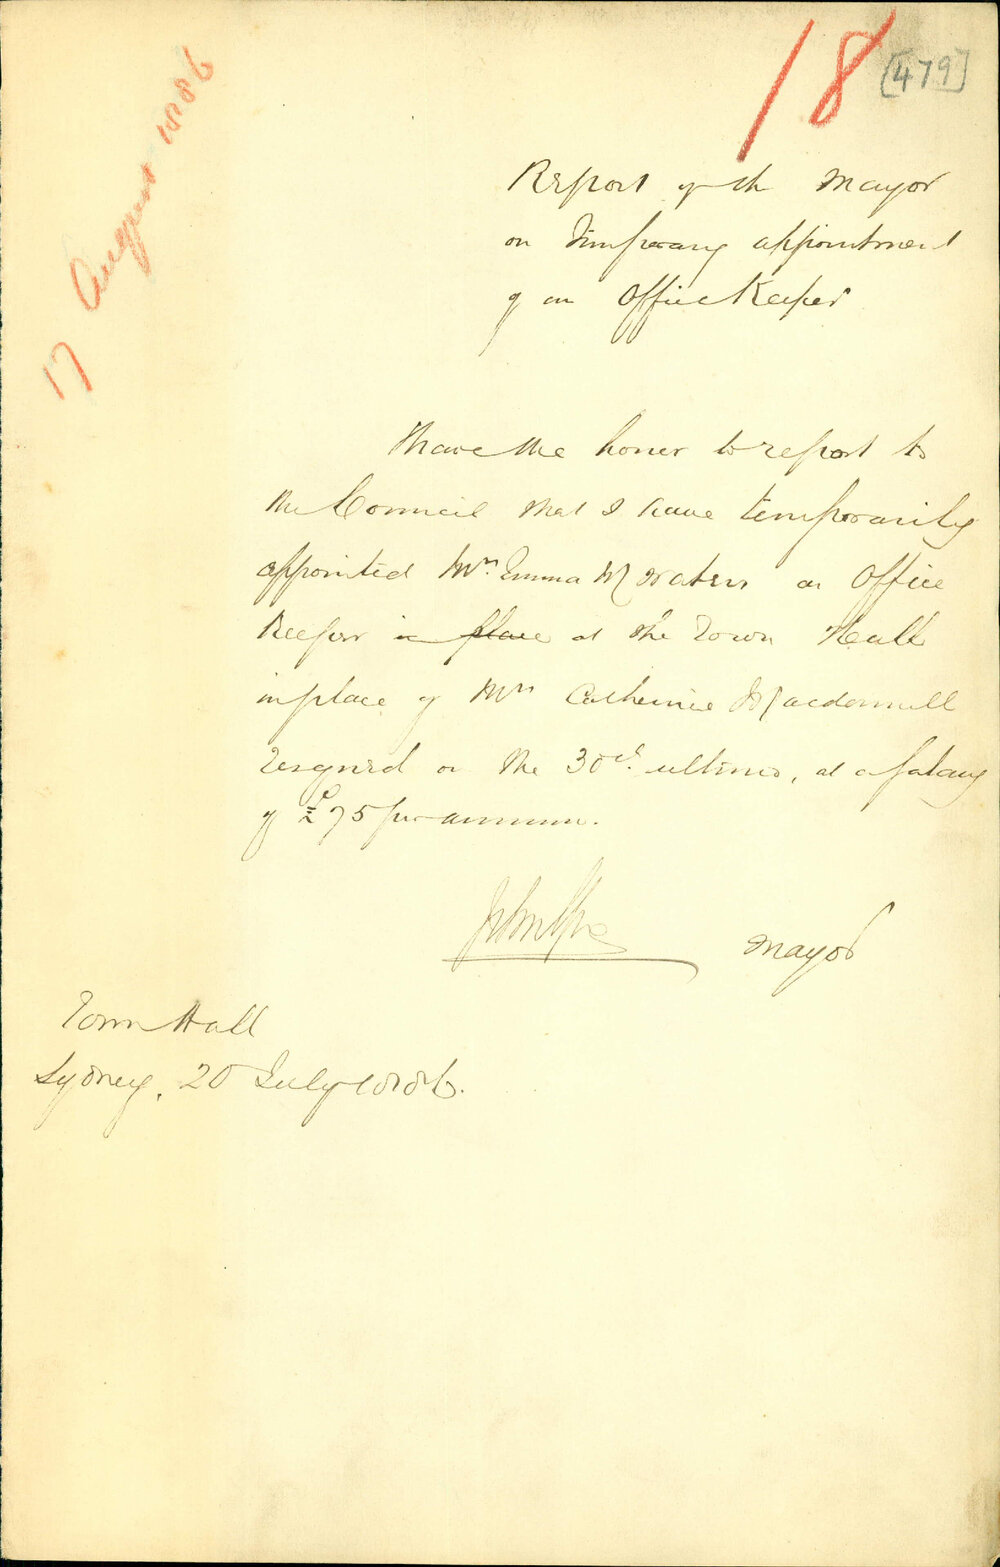 18
[479]
17 August 1886
Report of the Mayor
on Temporary appointment
of an Office Keeper
I have the honor to report to
the Council that I have temporarily
appointed Mrs. Emma as Office
Keeper in place at the Town Hall
in place of Mrs Catherine Macdonnell
resigned on the 30th ultimo, at a salary
of £75 per annum.
Mayor
Town Hall
Sydney, 20 July 1886.